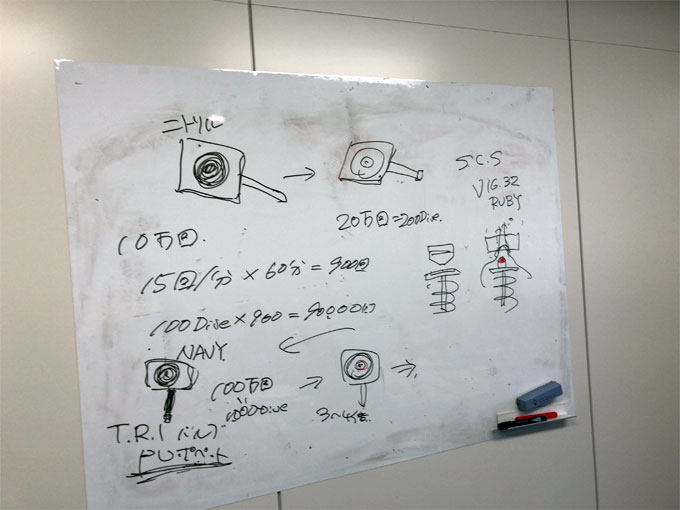 ニトリル
S.C.S
V16.32
RUBY
20万回=200Dive.
10万回.
15回/分 × 60分 = 900回
100Dive × 900 = 90000回
NAVY
100万回
1000Dive
T.R.I